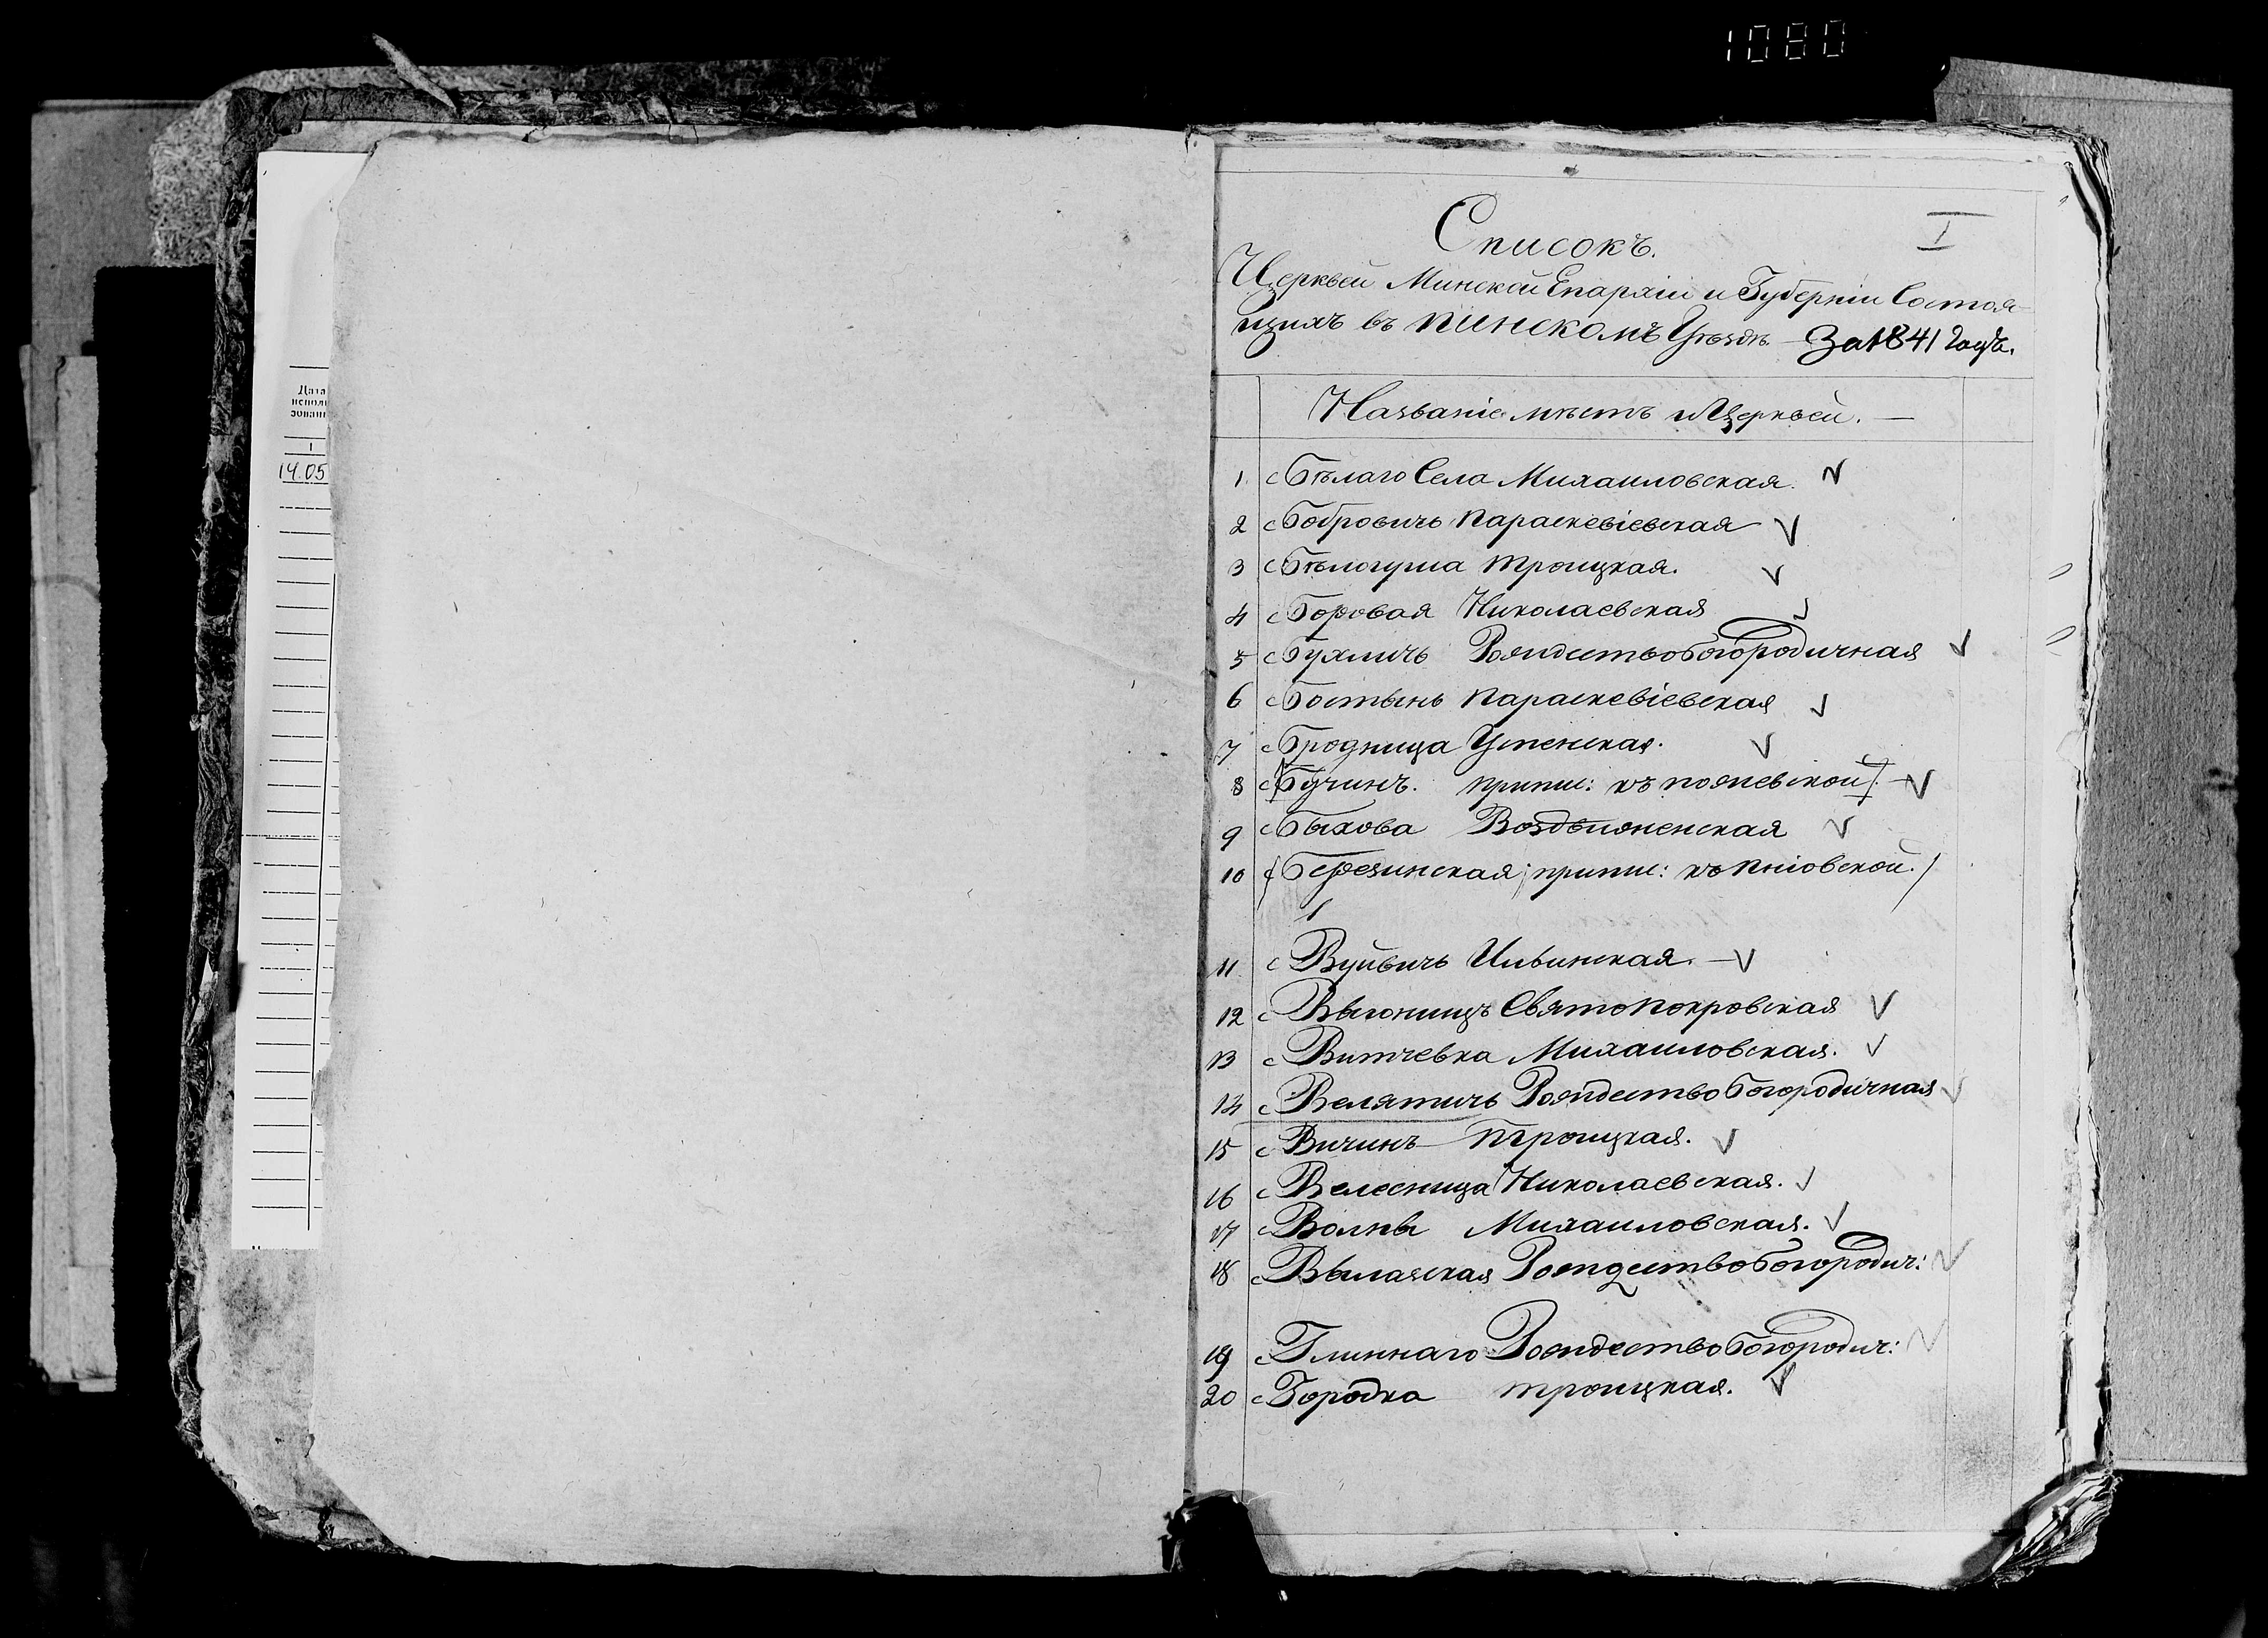 1080
Дата
исполь
зован
1
14.05
I
Списокъ.
Церквей Минской Епархіи и Губерніи Состоя-
щихъ въ Пинскомъ Уѣздѣ — За 1841 годъ.
Названіе мѣстъ и Церквей. —
1. с Бѣлаго Села Михаиловская.
2 с Бобровичь Параскевіевская
3 с Бѣлогуша Троицкая.
4 с Боровая Николаевская
5 с Бухличь Рождествобогородичная
6 с Бостынь Параскевіевская
7 с Бродница Успенская.
8 с Бучинъ. припис: къ
9 с Быхова Воздвиженская
10 с Березинская припис: къ
11 с Вуйвичь Ильинская. —
12 с Выгонищъ Святопокровская
13 с Витчевка Михаиловская.
14 с Велятичь Рождествобогородичная
15 с Вичинъ Троицкая.
16 с Велесница Николаевская.
17 с Волкы Михаиловская.
18 с Вылазская Рождествобогородич:
19 с Глиннаго Рождествобогородич:
20 с Городка Троицкая.